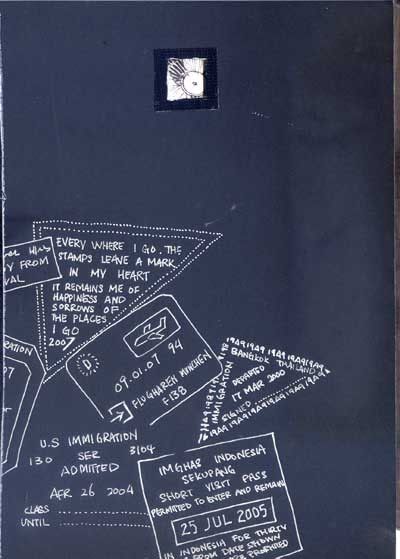 Y FROM
VAL
EVERY WHERE I GO. THE
STAMPS LEAVE A MARK
IN MY HEART
IT REMAINS ME OF
HAPPINESS AND
SORROWS OF
THE PLACES
I GO
2007
D
09.01.07 94
FLUGHAFEN MÜNCHEN
F138
BANGKOK THAILAND
IMMIGRATION
DEPARTED
17 MAR 2000
SIGNED
RATION
U.S IMMIGRATION
130 SER 3104
ADMITTED
APR 26 2004
CLASS
UNTIL
IMGHAB INDONESIA
SEKUPANG
SHORT VISIT PASS
PERMITTED TO ENTER AND REMAIN
25 JUL 2005
IN INDONESIA FOR THIRTY
FROM DATE SHOWN